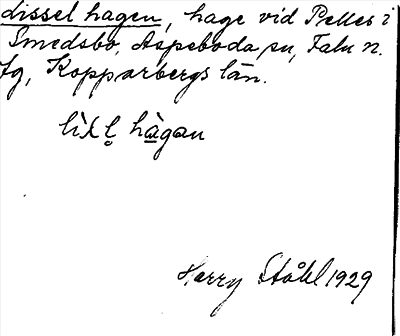 dissel hagen, hage vid Pelles i
Smedsbo, Aspeboda sn, Falu n.
fg, Kopparbergs län.
hàgan
Harry Ståhl 1929